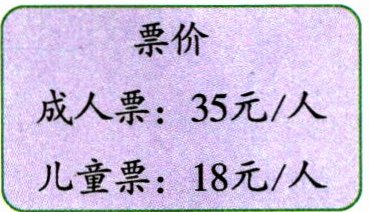 票价
成人票：35元/人
儿童票：18元/人